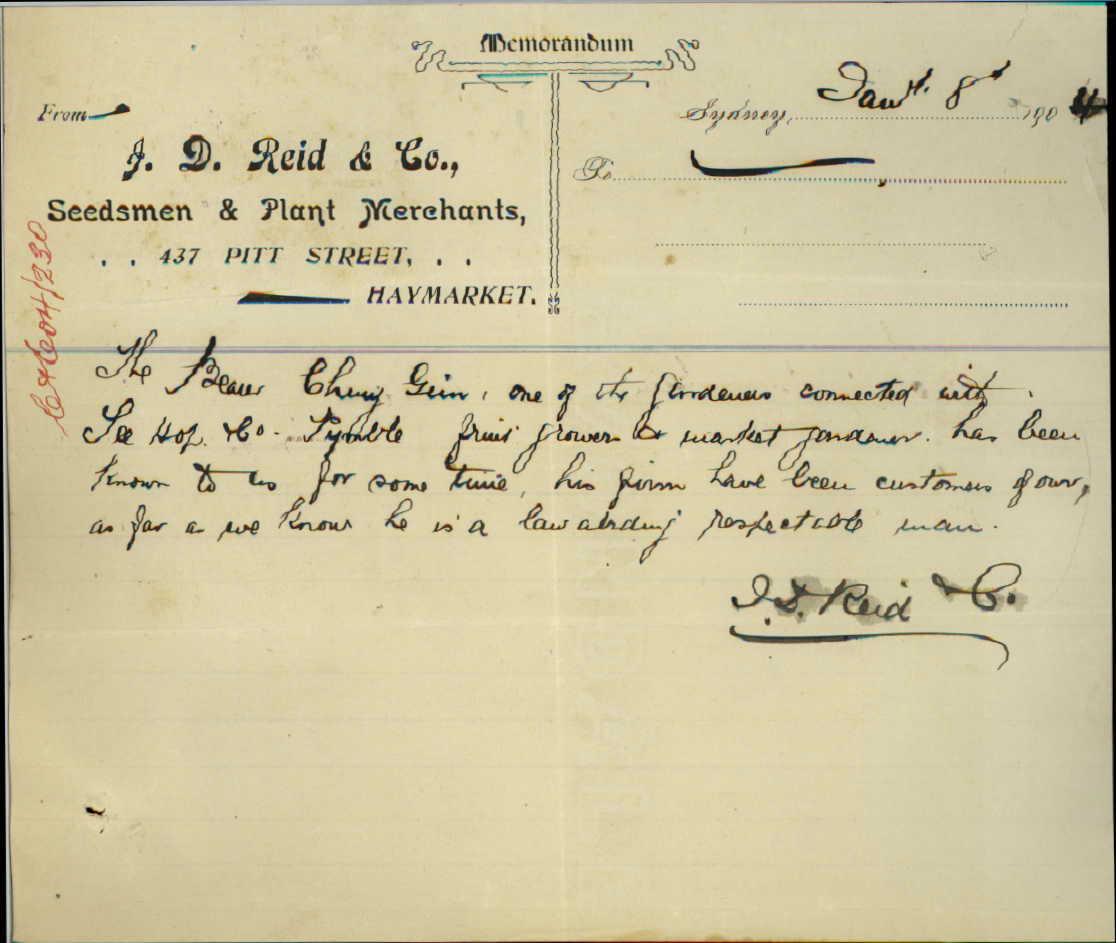 Memorandum
From
J. D. Reid & Co.,
Seedsmen & Plant Merchants,
. . 437 PITT STREET, . .
HAYMARKET.
Sydney, Jany. 8 1904
To
The Bearer Chung Gim, one of the gardeners connected with
See Hop. & Co. Pymble fruit growers & market gardener. has been
known to us for some time, his firm have been customers of ours,
as far as we know he is a law abiding respectable man.
J.D. Reid & Co.